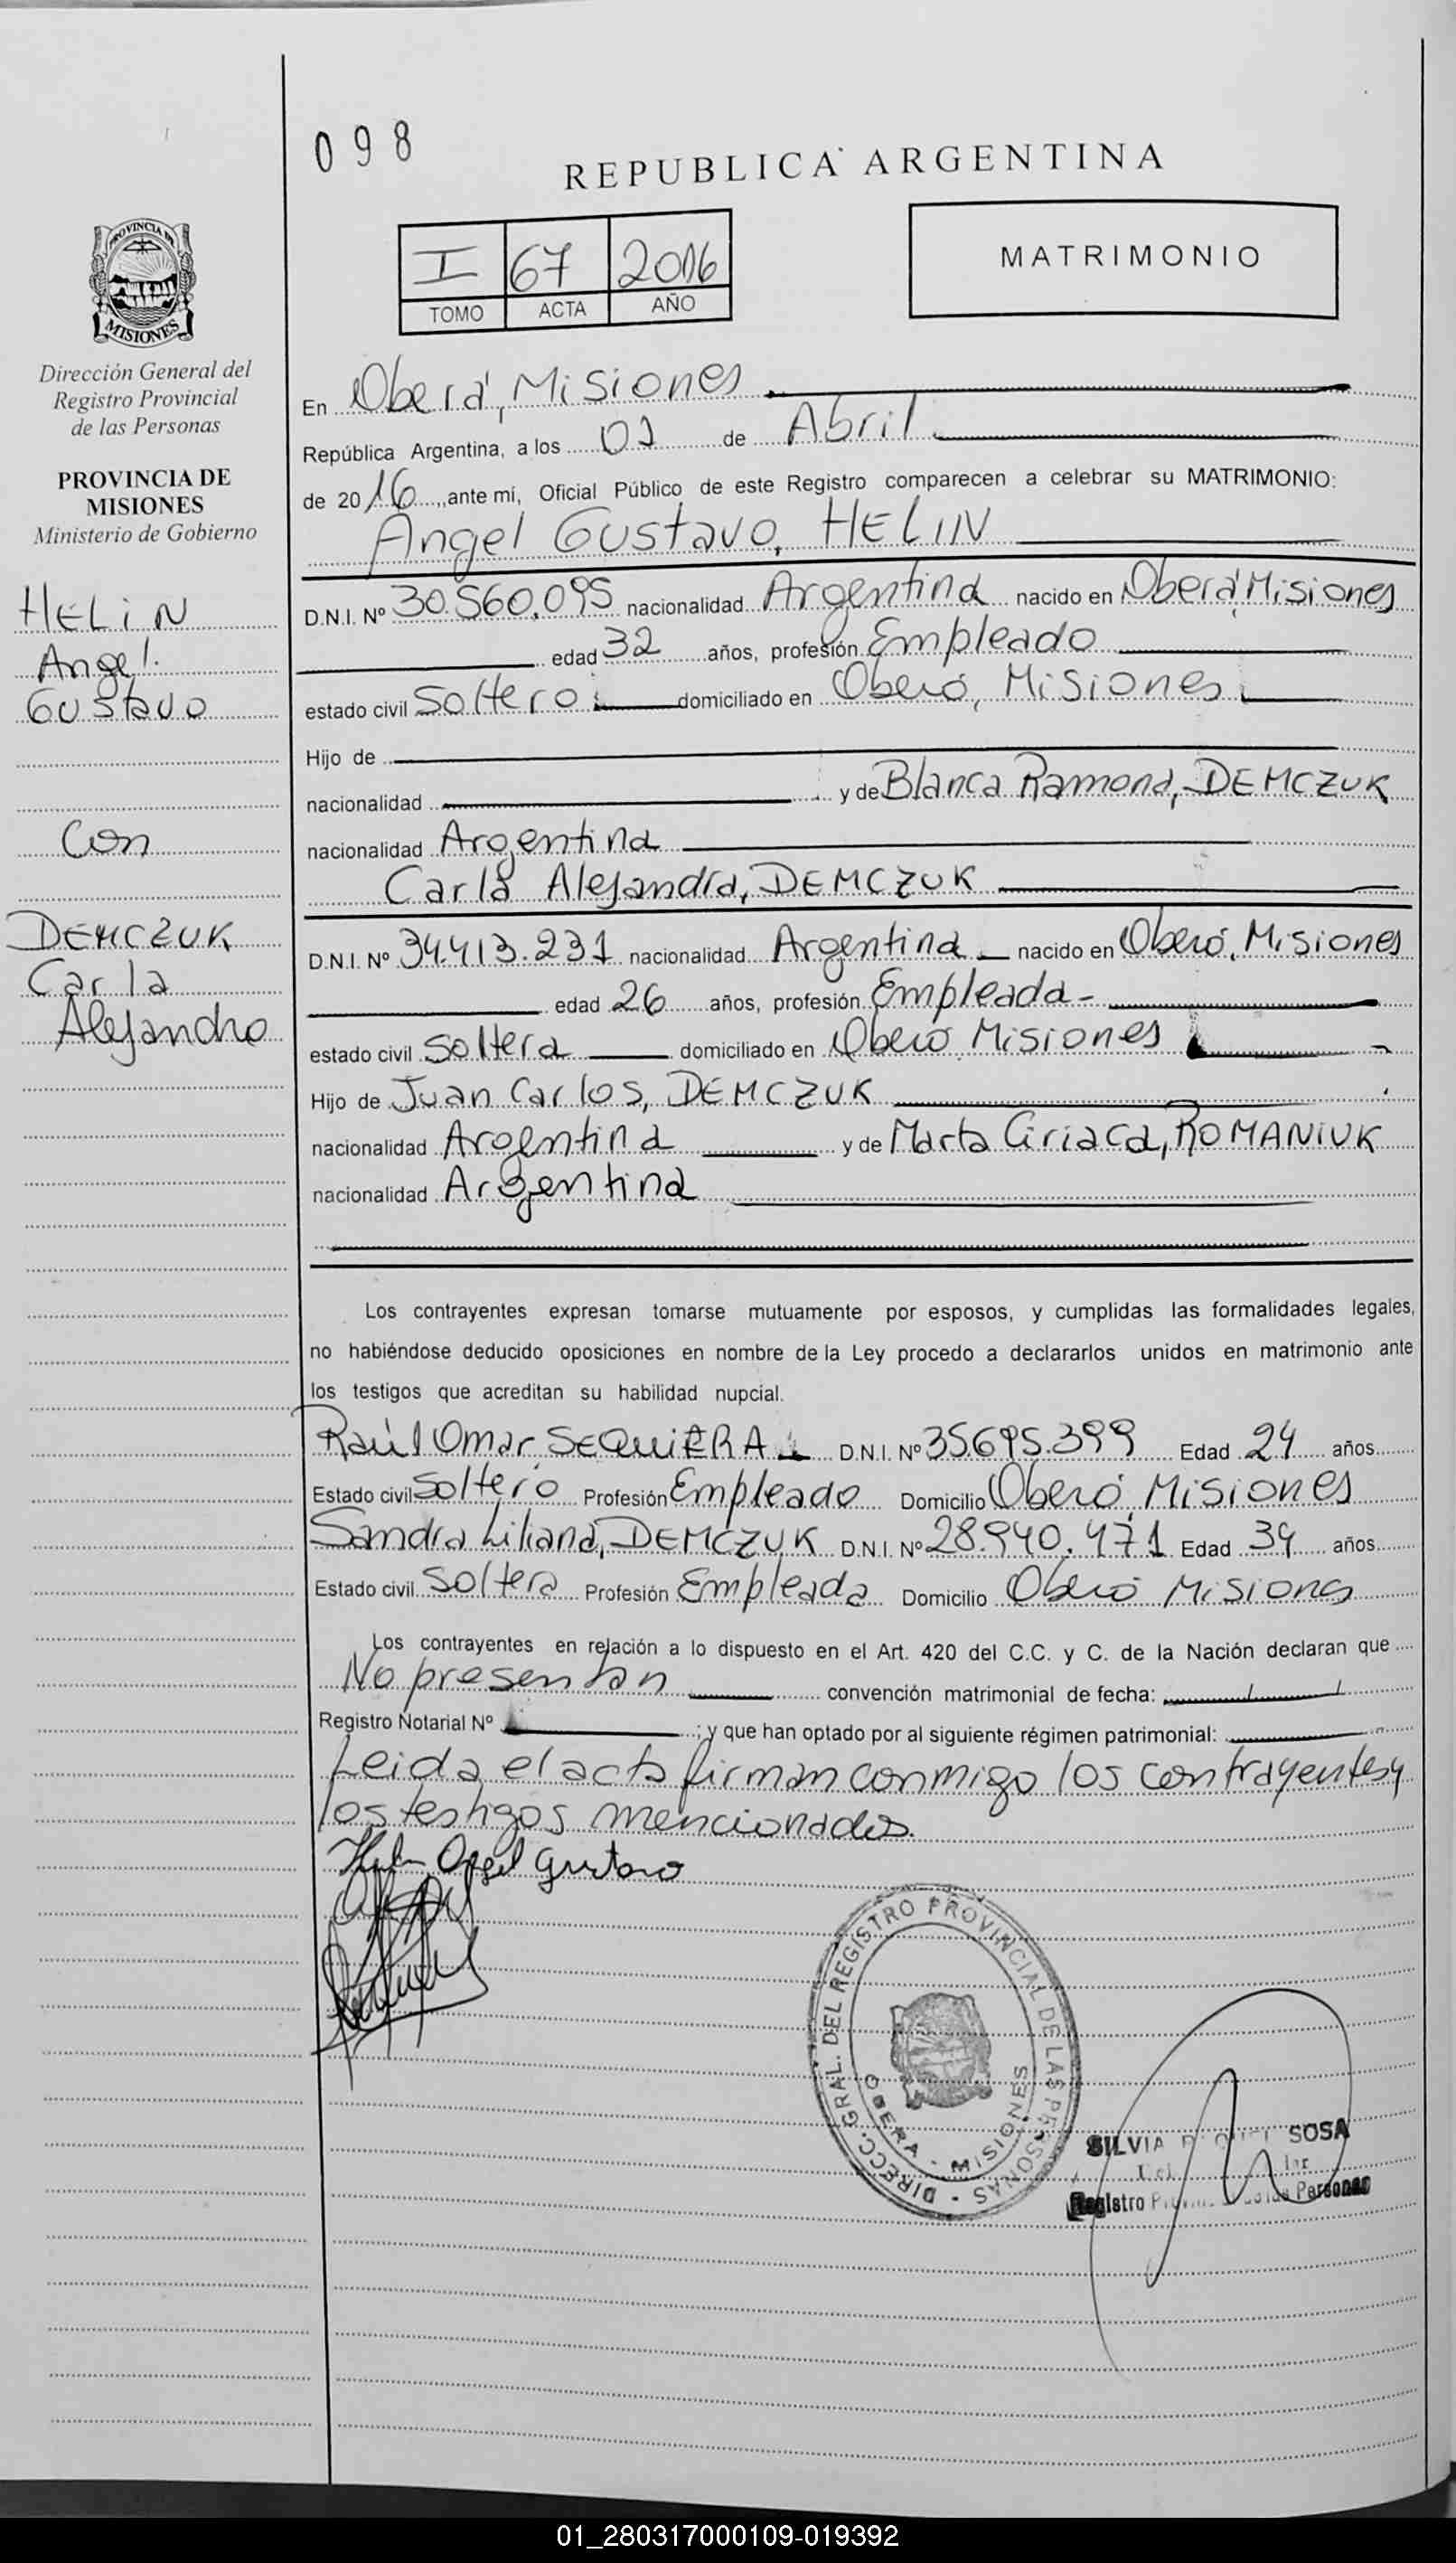 098
REPUBLICA ARGENTINA
I 67 2016
TOMO ACTA AÑO
MATRIMONIO
PROVINCIA DE
MISIONES
Dirección General del
Registro Provincial
de las Personas
PROVINCIA DE
MISIONES
Ministerio de Gobierno
HELIN
Angel
Gustavo
Con
DEMCZUK
Carla
Alejandra
En Oberá, Misiones
República Argentina, a los 01 de Abril
de 2016, ante mí, Oficial Público de este Registro comparecen a celebrar su MATRIMONIO:
Angel Gustavo, HELIN
D.N.I. Nº 30.560.095 nacionalidad Argentina nacido en Oberá, Misiones
edad 32 años, profesión Empleado
estado civil Soltero domiciliado en Oberá, Misiones
Hijo de
nacionalidad y de Blanca Ramona, DEMCZUK
nacionalidad Argentina
Carla Alejandra, DEMCZUK
D.N.I. Nº 34.413.231 nacionalidad Argentina nacido en Oberá, Misiones
edad 26 años, profesión Empleada
estado civil Soltera domiciliado en Oberá Misiones
Hijo de Juan Carlos, DEMCZUK
nacionalidad Argentina y de Marta Ciriaca, ROMANIUK
nacionalidad Argentina
Los contrayentes expresan tomarse mutuamente por esposos, y cumplidas las formalidades legales,
no habiéndose deducido oposiciones en nombre de la Ley procedo a declararlos unidos en matrimonio ante
los testigos que acreditan su habilidad nupcial.
Raúl Omar SEQUIERA D.N.I. Nº 35.695.399 Edad 24 años
Estado civil Soltero Profesión Empleado Domicilio Oberá, Misiones
Sandra Liliana, DEMCZUK D.N.I. Nº 28.940.471 Edad 34 años
Estado civil Soltera Profesión Empleada Domicilio Oberá Misiones
Los contrayentes en relación a lo dispuesto en el Art. 420 del C.C. y C. de la Nación declaran que
No presentan convención matrimonial de fecha: / /
Registro Notarial Nº ; y que han optado por al siguiente régimen patrimonial:
Leida el acta firman conmigo los contrayentes y
los testigos mencionados.
Helin Angel Gustavo
DIRECC. GRAL. DEL REGISTRO PROVINCIAL DE LAS PERSONAS
OBERA - MISIONES
SILVIA SOSA
Registro Personas
01_280317000109-019392